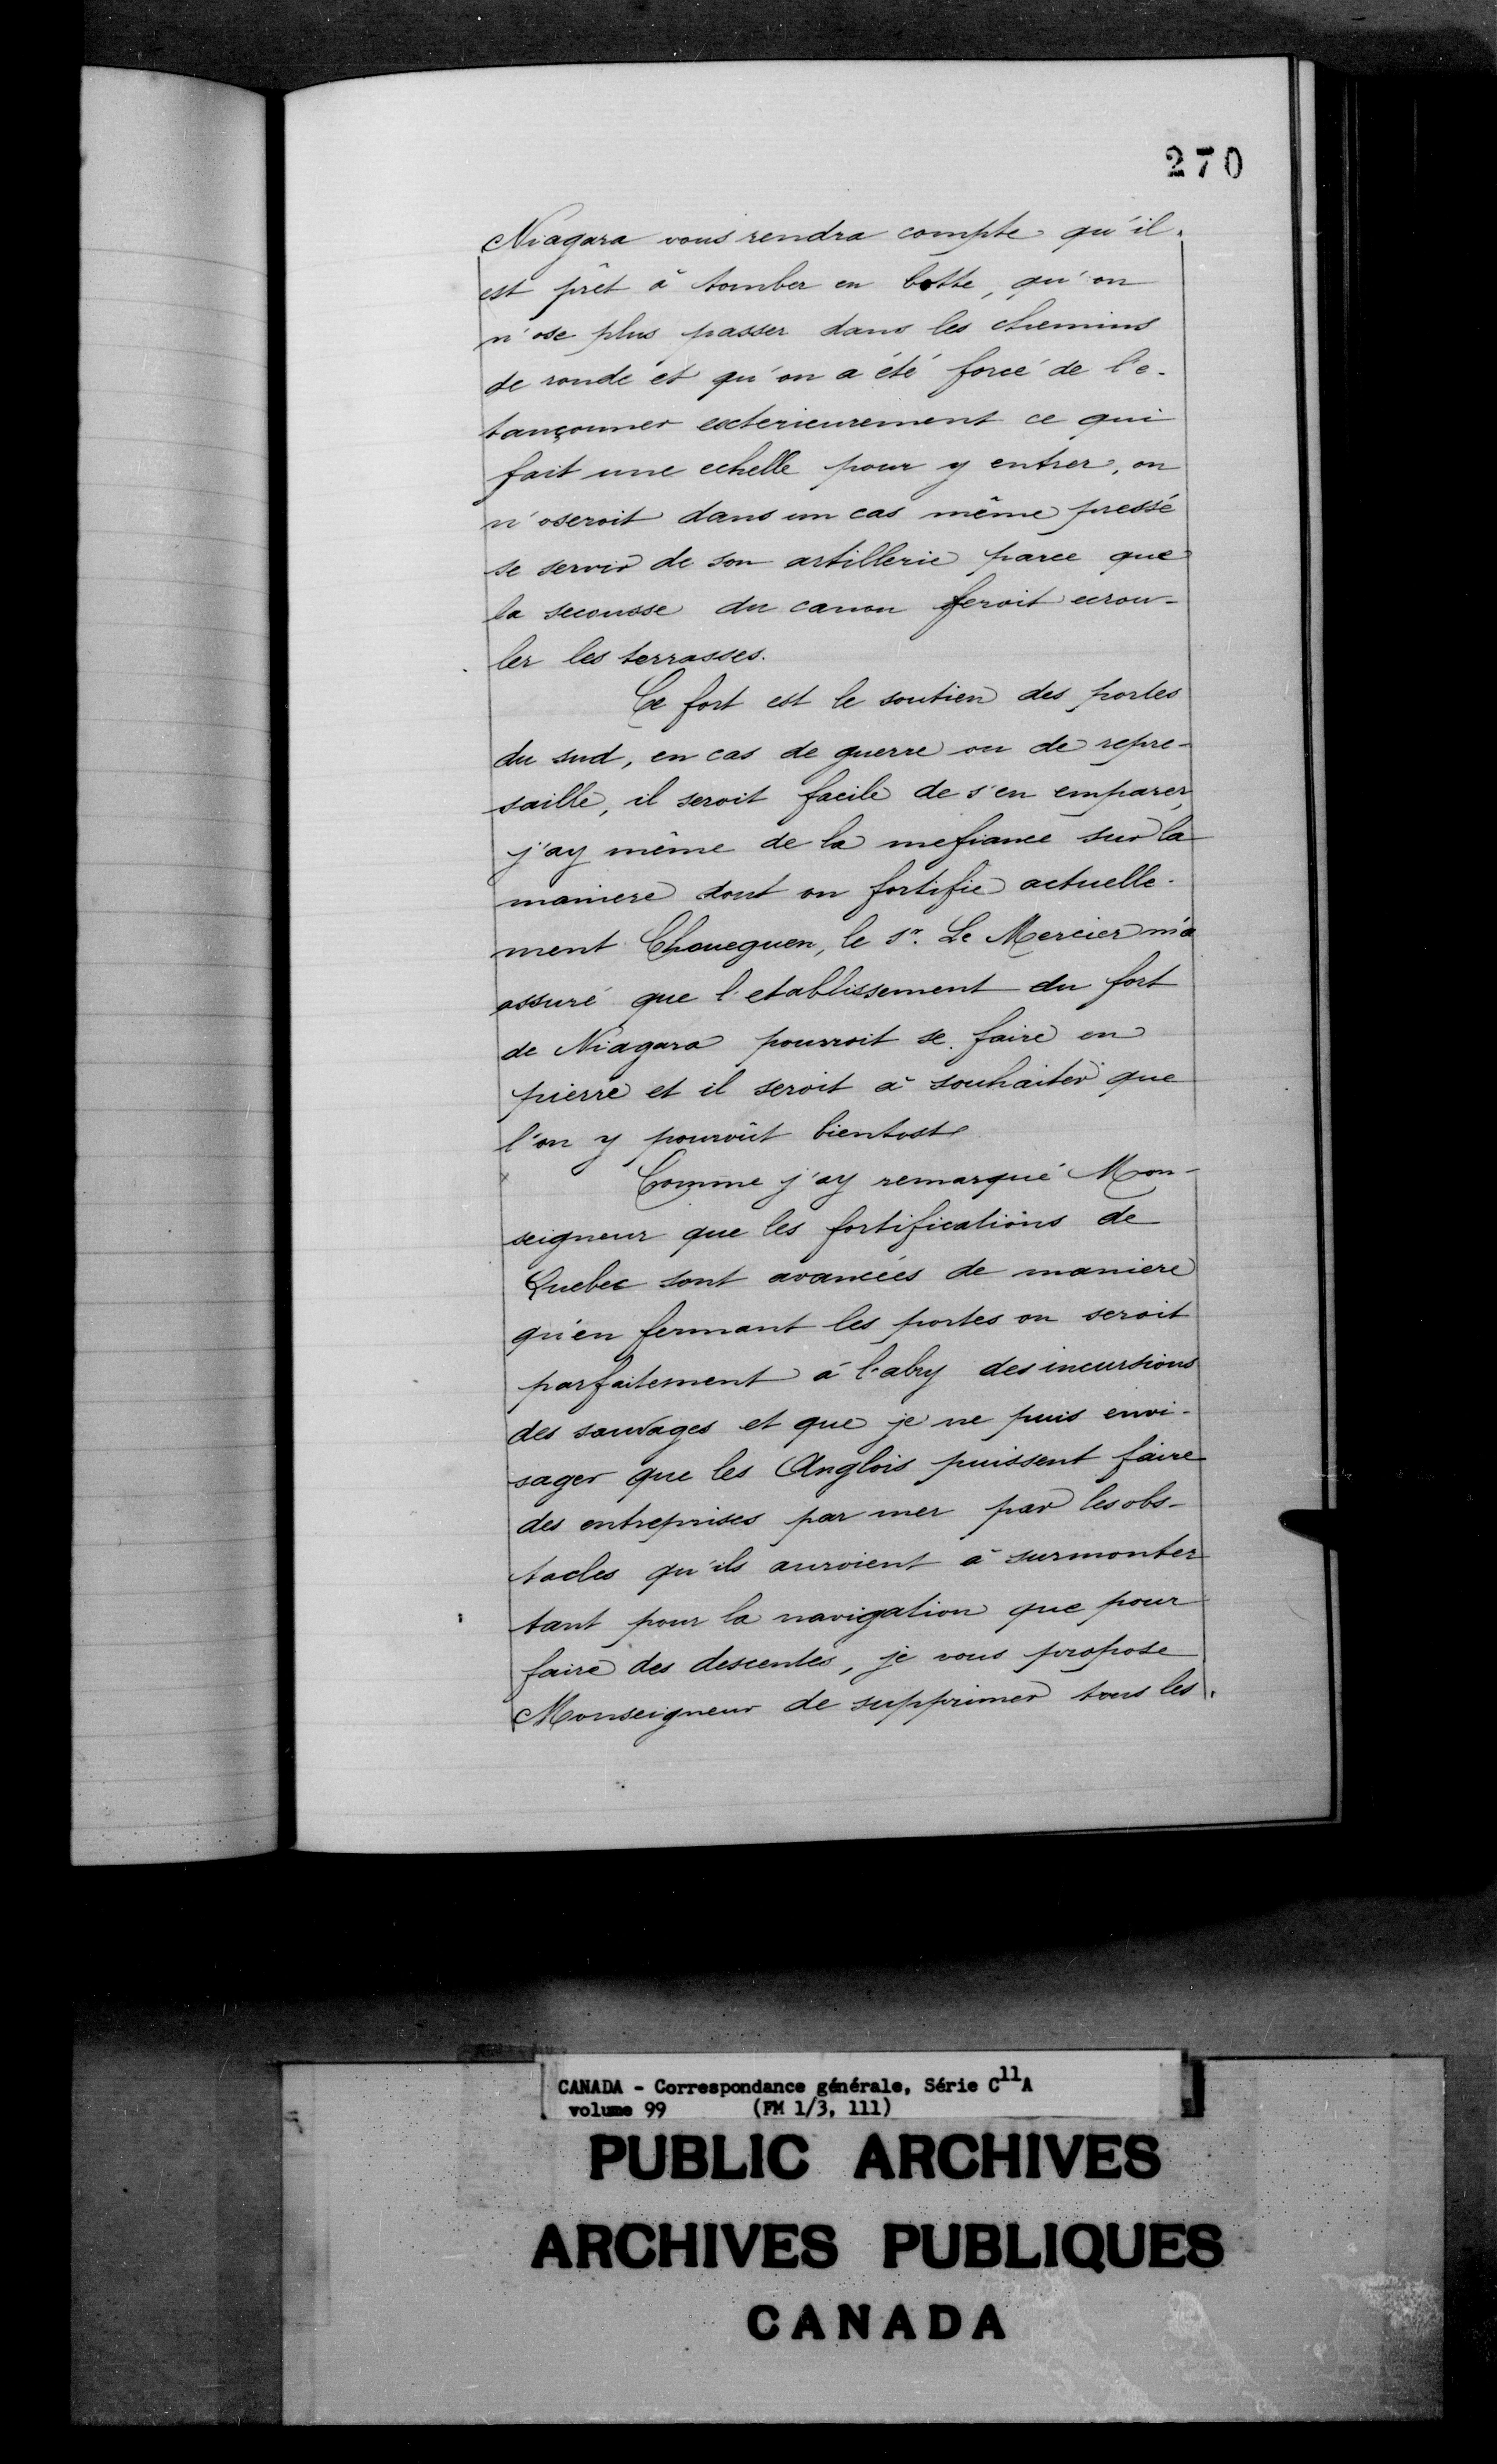 270
Niagara vous rendra compte qu'il
est prêt à tomber en botte, qu'on
n'ose plus passer dans les chemins
de ronde et qu'on a été forcé de l'e-
tançonner exterieurement ce qui
fait une echelle pour y entrer, on
n'oseroit dans un cas même pressé
se servir de son artillerie parce que
la secousse du canon feroit ecrou-
ler les terrasses.
Ce fort est le soutien des portes
du sud, en cas de guerre ou de repre-
saille, il seroit facile de s'en emparer,
j'ay même de la mefiance sur la
maniere dont on fortifie actuelle-
ment Choueguen, le Sr. Le Mercier m'a
assuré que l'etablissement du fort
de Niagara pourroit se faire en
pierre et il seroit à souhaiter que
l'on y pourvût bientost
Comme j'ay remarqué Mon-
seigneur que les fortifications de
Quebec sont avancées de maniere
qu'en fermant les portes on seroit
parfaitement à l'abry des incursions
des sauvages et que je ne puis envi-
sager que les Anglois puissent faire
des entreprises par mer par les obs-
tacles qu'ils auroient à surmonter
tant pour la navigation que pour
faire des descentes, je vous propose
Monseigneur de supprimer tous les
CANADA - Correspondance générale, Série C11A
volume 99 (FM 1/3, 111)
PUBLIC ARCHIVES
ARCHIVES PUBLIQUES
CANADA